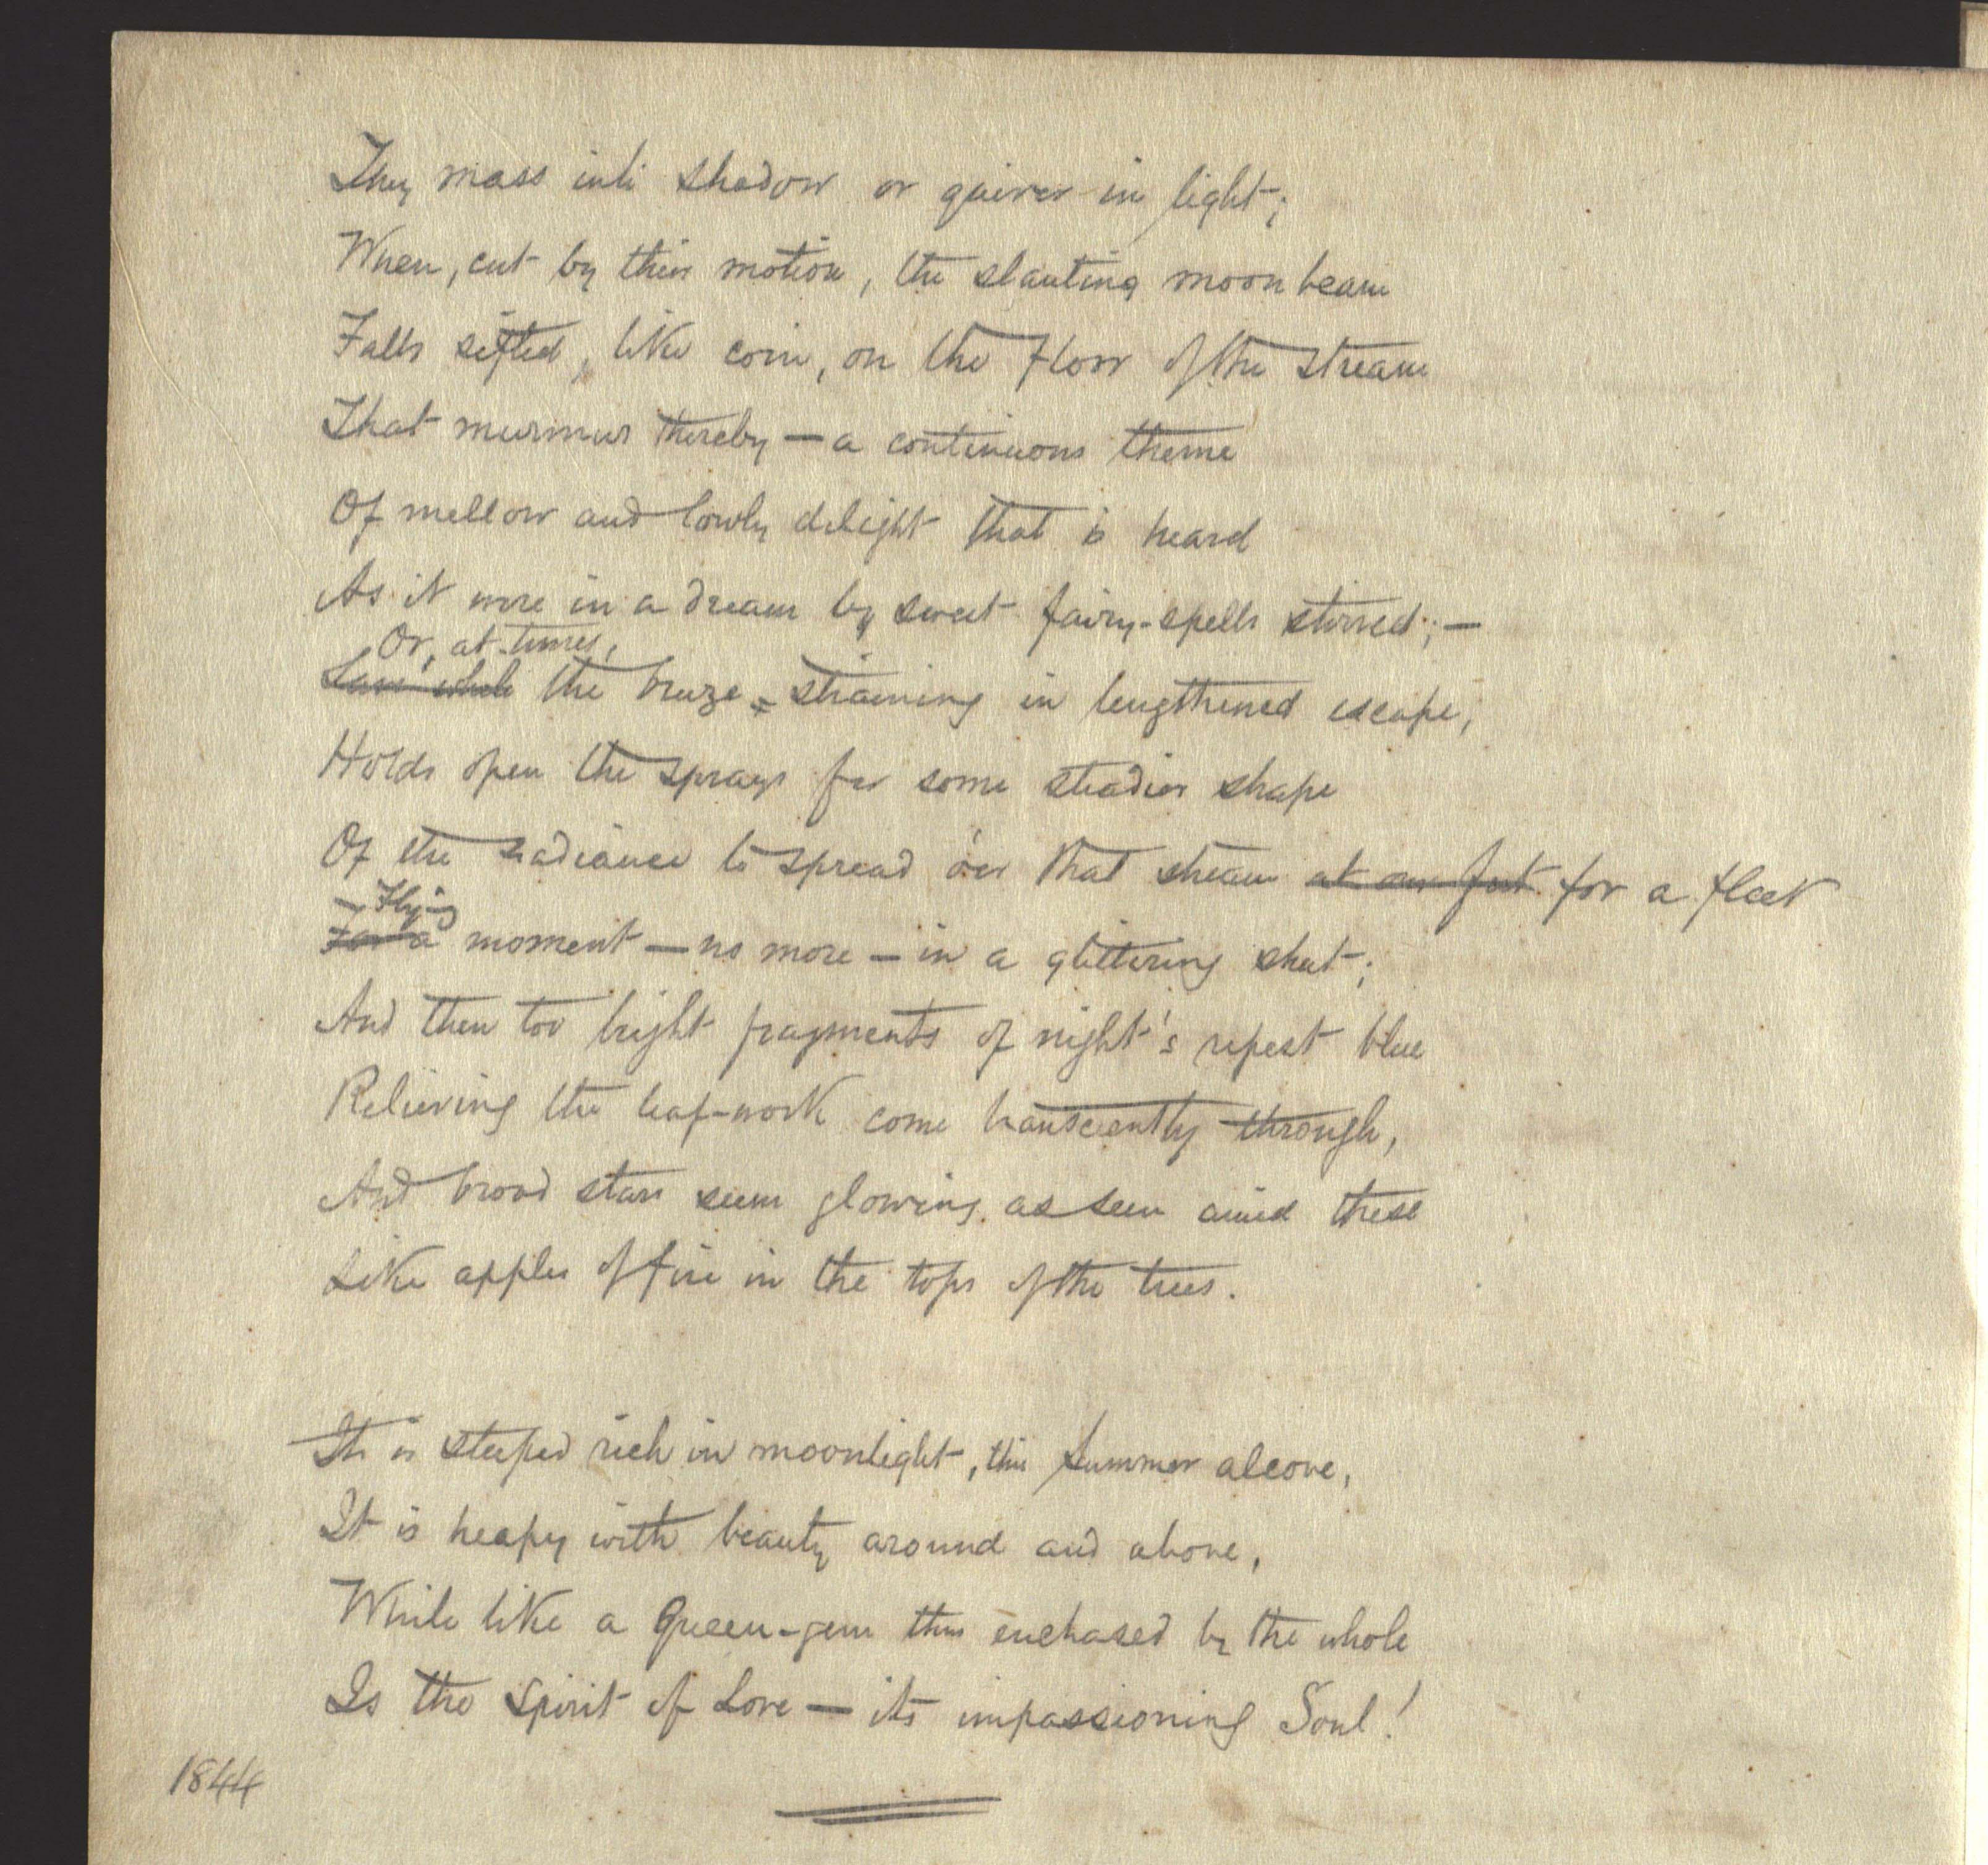 They mass into shadow or quiver in light;
When, cut by their motion, the slanting moonbeam
Falls sifted, like coin, on the floor of the stream
That murmurs thereby — a continuous theme
Of mellow and lowly delight that is heard
As it were in a dream by sweet fairy-spells stirred; —
Or, at times,
Save while the breeze, straining in lengthened escape,
Holds open the sprays for some steadier shape
Of the radiance to spread o'er that stream at our feet for a fleet
— Flying
For a moment — no more — in a glittering sheet;
And then too bright fragments of night's ripest blue
Relieving the leaf-work come transciently through,
And broad stars seem glowing as seen amid these
Like apples of fire in the tops of the trees.
It is steeped rich in moonlight, this Summer alcove,
It is heapy with beauty around and above,
While like a Queen-gem thus enchased by the whole
Is the Spirit of Love — its impassioning Soul!
1844